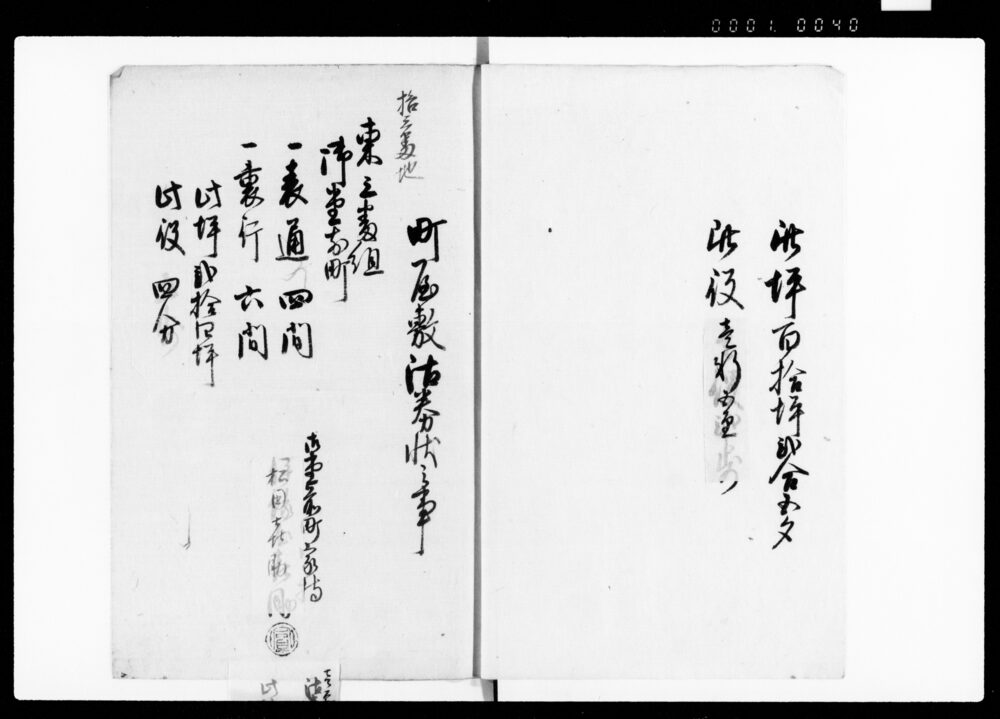 0001.0040
此坪百拾坪弐合五夕
此役
拾三番地
町屋敷沽券状之事
東三番組
御堂前町
一表通四間
一裏行六間
此坪弐拾四坪
此役四分
御堂前町家持
松田